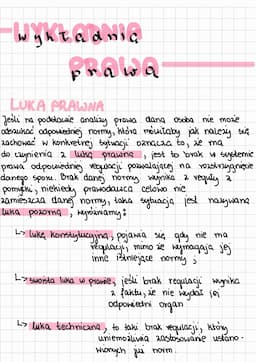 WYKŁADNIA
PRAWA
LUKA PRAWNA
Jeśli na podstawie analizy prawa dana osoba nie może
odszukać odpowiedniej normy, która mówiłaby jak należy się
zachować w konkretnej sytuacji oznacza to, że ma
do czynienia z luką prawną, jest to brak w systemie
prawa odpowiedniej regulacji pozwalającej na rozstrzygnięcie
danego sporu. Brak danej normy wynika z reguły z
pomyłki, niekiedy prawodawca celowo nie
zamieszcza danej normy, taka sytuacja jest nazywana
luką pozorną, wyróżniamy:
↳ lukę konstrukcyjną, pojawia się gdy nie ma
regulacji, mimo że wymagają jej
inne istniejące normy;
↳ swoista luka w prawie, jeśli brak regulacji wynika
z faktu, że nie wydał jej
odpowiedni organ
↳ luka techniczna, to taki brak regulacji, który
uniemożliwia zastosowanie ustano-
wionych już norm.